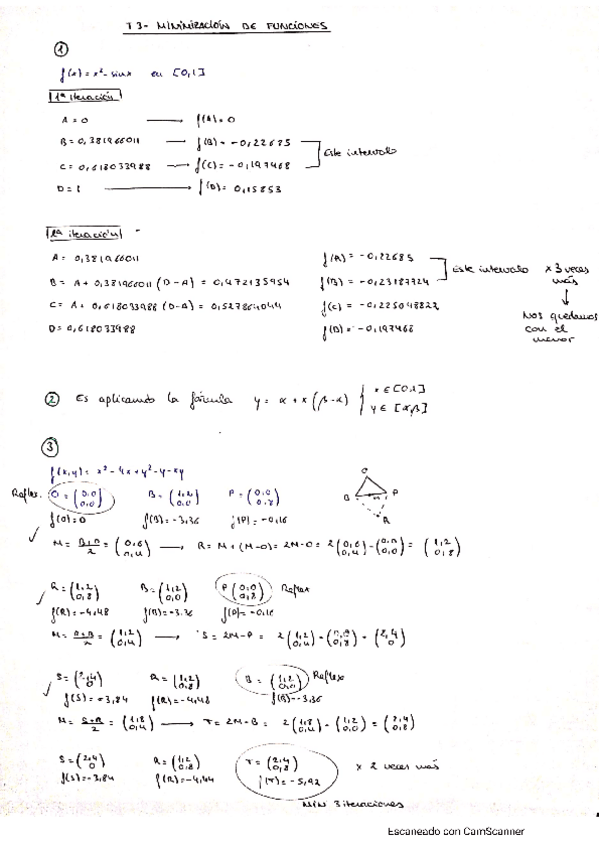 T3- MINIMIZACIÓN DE FUNCIONES
①
f(x) = x² - sinx en [0,1]
1ª iteración
A = 0 → f(A) = 0
B = 0,381966011 → f(B) = -0,22685
C = 0,618033988 → f(C) = -0,197468
Este intervalo
D = 1 → f(D) = 0,15853
2ª iteración
A = 0,381966011 f(A) = -0,22685
B = A + 0,381966011 (D-A) = 0,472135954 f(B) = -0,23187724
Este intervalo x 3 veces más
C = A + 0,618033988 (D-A) = 0,527864044 f(C) = -0,225048822
D = 0,618033988 f(D) = -0,197468
Nos quedamos con el menor
② Es aplicando la fórmula y = α + x (β-α) x ∈ [0,1]
y ∈ [α,β]
③
f(x,y) = x² - 4x + y² - y - xy
Reflex. O = (0,0 0,0) B = (1,2 0,0) P = (0,0 0,8)
O
B M P
R
f(O) = 0 f(B) = -3,36 f(P) = -0,16
M = B+P/2 = (0,6 0,4) → R = M + (M-O) = 2M-O = 2(0,6 0,4) - (0,0 0,0) = (1,2 0,8)
R = (1,2 0,8) B = (1,2 0,0) P (0,0 0,8) Reflex
f(R) = -4,48 f(B) = -3,36 f(P) = -0,16
M = R+B/2 = (1,2 0,4) → S = 2M-P = 2(1,2 0,4) - (0,0 0,8) = (2,4 0)
S = (2,4 0) R = (1,2 0,8) B = (1,2 0,0) Reflexo
f(S) = -3,84 f(R) = -4,48 f(B) = -3,36
M = S+R/2 = (1,8 0,4) → T = 2M-B = 2(1,8 0,4) - (1,2 0,0) = (2,4 0,8)
S = (2,4 0) R = (1,2 0,8) T = (2,4 0,8) x 2 veces más
f(S) = -3,84 f(R) = -4,44 f(T) = -5,92
MIN 3 iteraciones
Escaneado con CamScanner